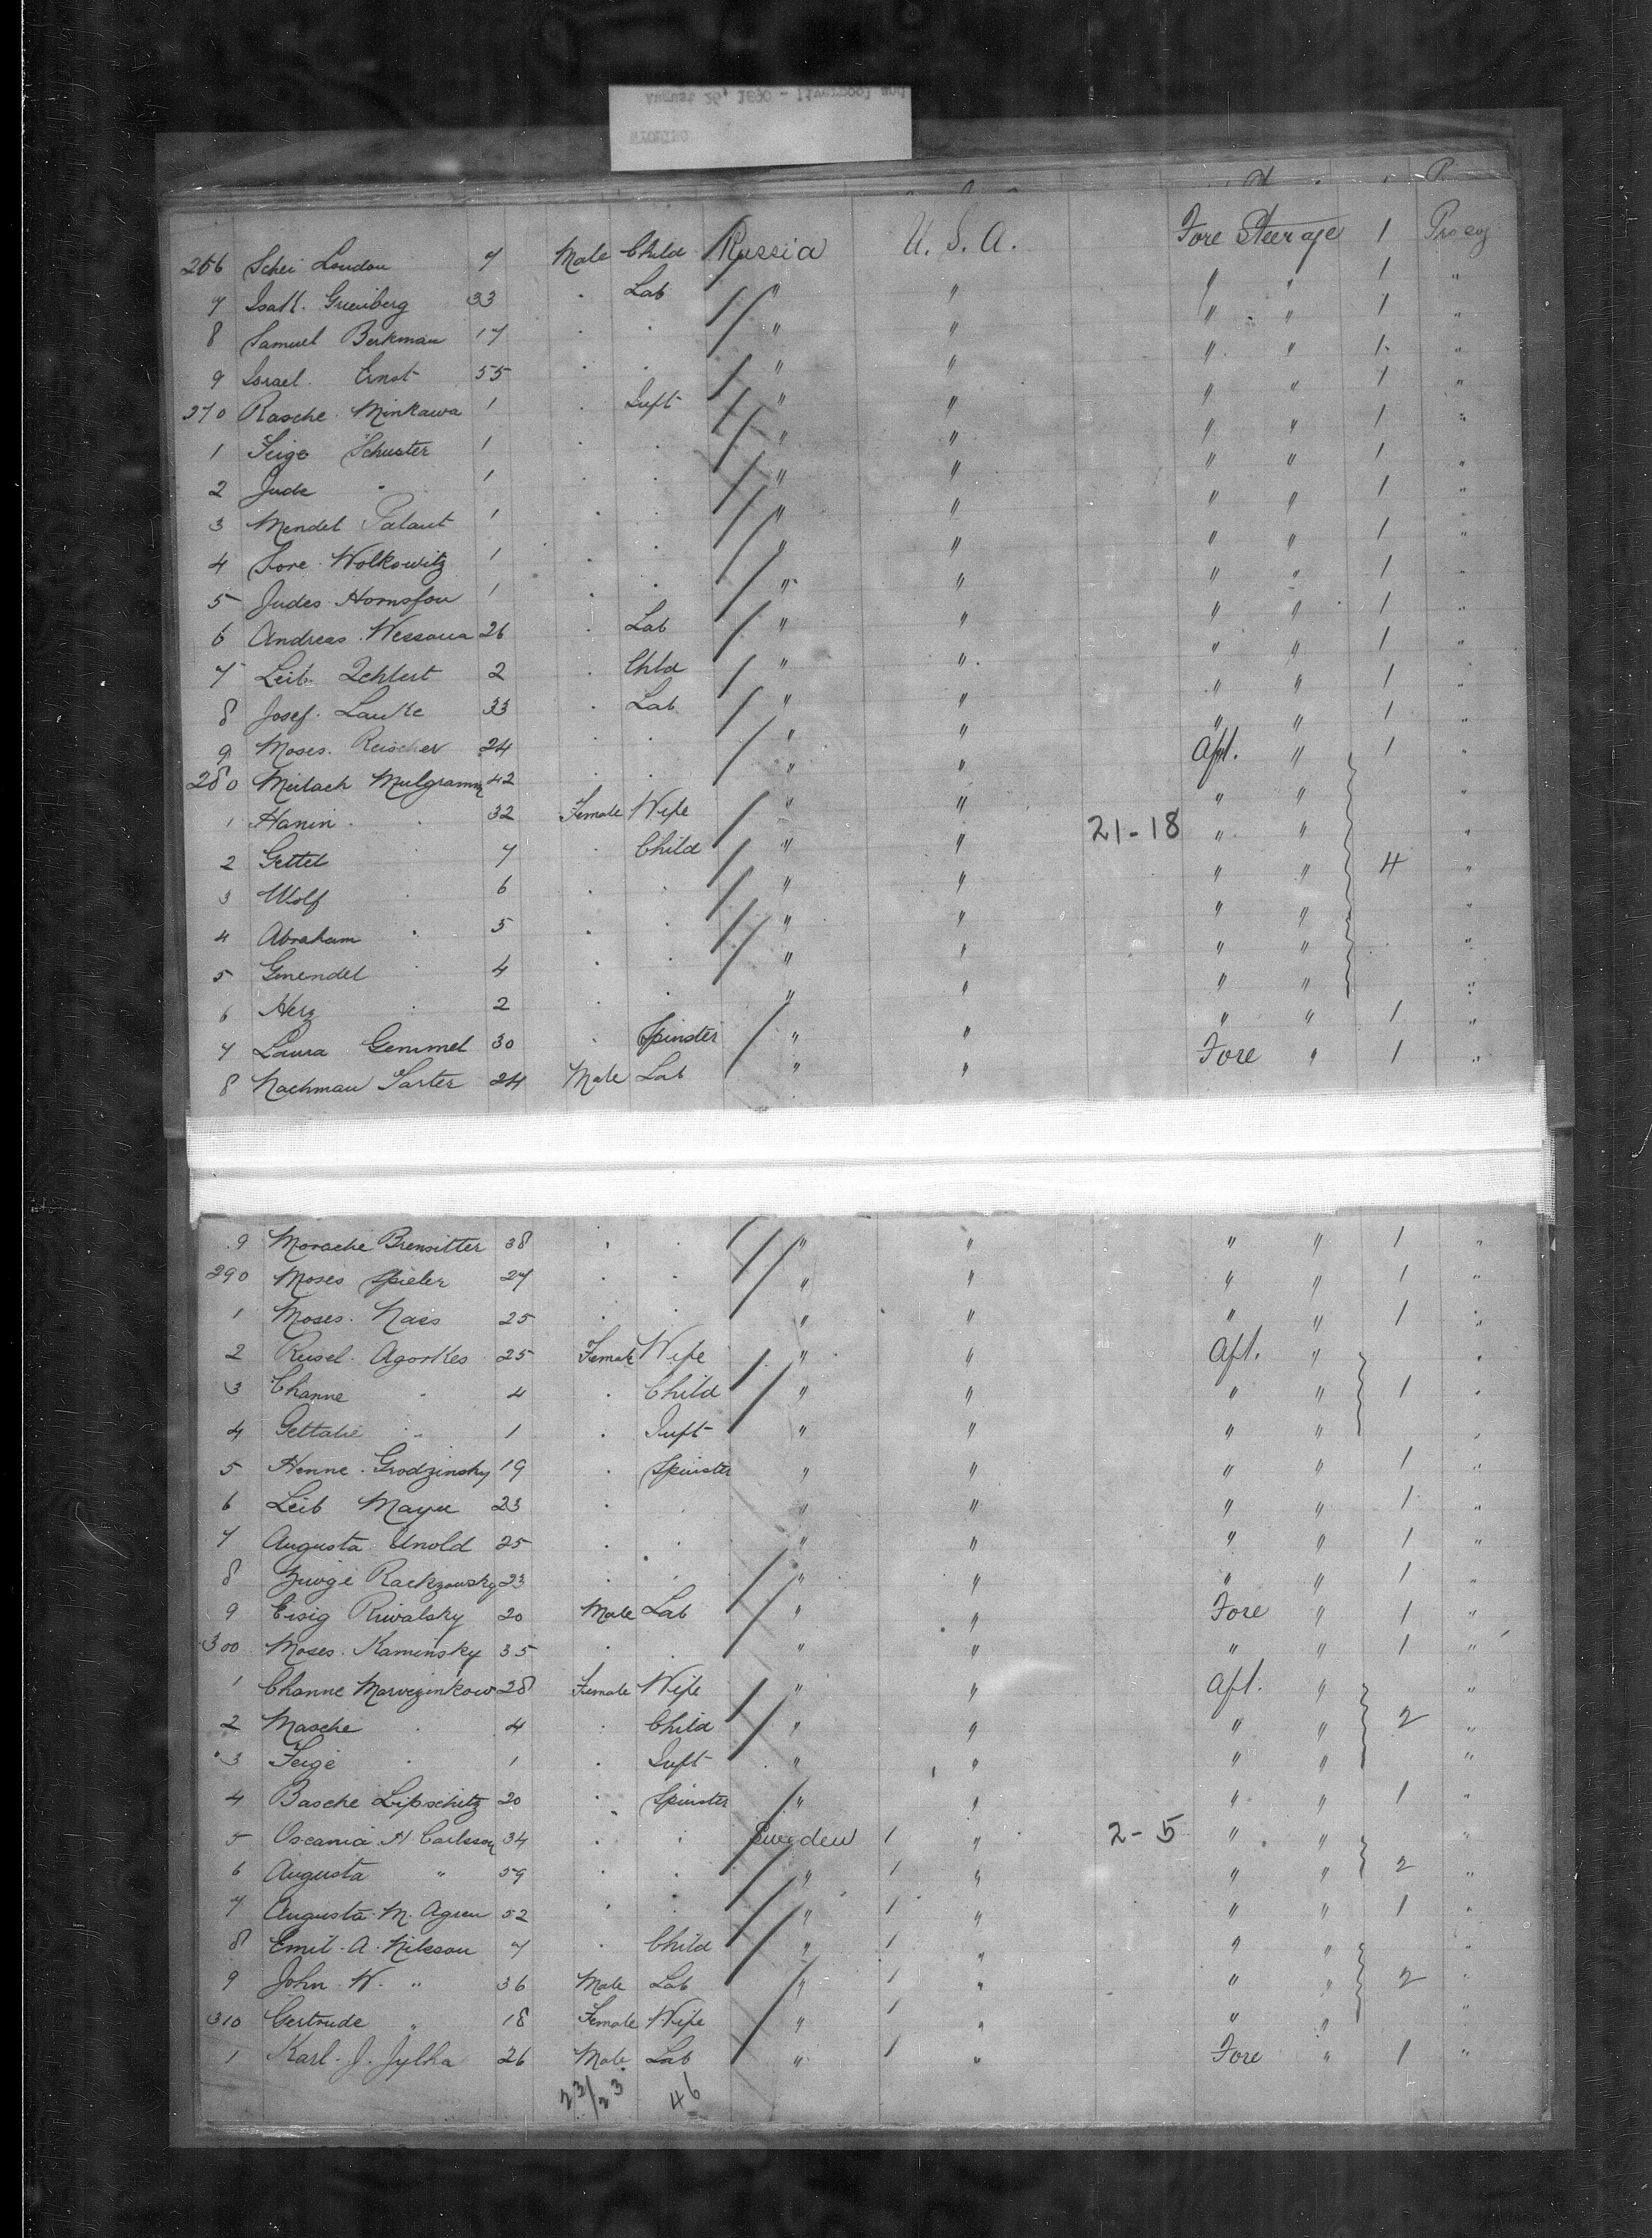 August 26, 1890 - Liverpool and
WYOMING
266 Schei London 7 Male Child Russia U. S. A. Fore Steerage 1 Pro eg
7 Isak. Grünberg 33 . Lab " " " " 1 "
8 Samuel Berkman 17 . . " " " " 1 "
9 Israel. Ernst 55 . . " " " " 1 "
270 Rasche Minkawa 1 . Inft " " " " 1 "
1 Feige Schuster 1 . . " " " " 1 "
2 Jude " 1 . . " " " " 1 "
3 Mendel Palaut 1 . . " " " " 1 "
4 Sore Wolkowitz 1 . . " " " " 1 "
5 Judes 1 . . " " " " 1 "
6 Andreas Wessoua 26 . Lab " " " " 1 "
7 Leib 2 . Chld " " " " 1 "
8 Josef. Lauke 33 . Lab " " " " 1 "
9 Moses. Reischer 24 . . " " Aft. " 1 "
280 Meilach Mulgramm 42 . . " " " " "
1 Hanin . 32 Female Wife " " 21-18 " " "
2 Gettel 7 . Child " " " " 4 "
3 Wolf . 6 . . " " " " "
4 Abraham . 5 . . " " " " "
5 Genendel . 4 . . " " " " "
6 Herz . 2 . . " " " " 1 "
7 Laura Gemmel 30 . Spinster " " Fore " 1 "
8 Nachman Sarter 24 Male Lab " "
9 Morache Brensitter 38 . . " " " " 1 "
290 Moses Spieler 27 . . " " " " 1 "
1 Moses. Nass 25 . . " " " " 1 "
2 Reisel. Agorkes 25 Female Wife " " Aft. " "
3 Channe " 4 . Child " " " " 1 "
4 Gettalie " 1 . Inft " " " " "
5 Henne. Grodzinsky 19 . Spinster " " " " 1 "
6 Leib Mayer 23 . . " " " " 1 "
7 Augusta Unold 25 . . " " " " 1 "
8 Zivge Rackzowsky 23 . . " " " " 1 "
9 Eisig Riwalsky 20 Male Lab " " Fore " 1 "
300 Moses. Kaminsky 35 . . " " " " 1 "
1 Channe 28 Female Wife " " Aft. " "
2 Masche . 4 . Child " " " " 2 "
3 Feige . 1 . Inft " " " " "
4 Basche Lipschitz 20 . Spinster " " " " 1 "
5 Oscania H Carlsson 34 . . Sweden 1 " 2-5 " " "
6 Augusta " 59 . . " 1 " " " 2 "
7 Augusta. M. Agren 52 . . " 1 " " " 1 "
8 Emil. A. Nilsson 7 . Child " 1 " " " "
9 John W. " 36 Male Lab " 1 " " " 2 "
310 Gertrude " 18 Female Wife " 1 " " " "
1 Karl. J. Jylha 26 Male Lab " 1 " Fore " 1 "
23/23 46